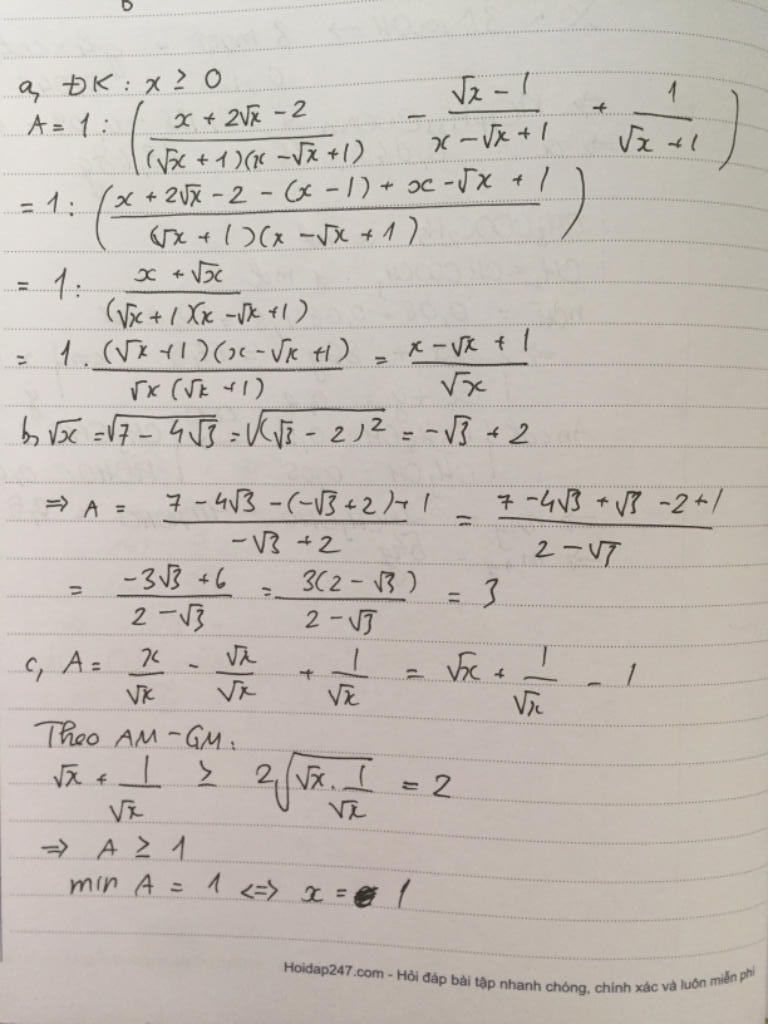 a, ĐK : x ≥ 0
A = 1 : ( (x + 2√x - 2)/((√x + 1)(x - √x + 1)) - (√x - 1)/(x - √x + 1) + 1/(√x + 1) )
= 1 : ( (x + 2√x - 2 - (x - 1) + x - √x + 1)/((√x + 1)(x - √x + 1)) )
= 1 : (x + √x)/((√x + 1)(x - √x + 1))
= 1 . ((√x + 1)(x - √x + 1))/(√x(√x + 1)) = (x - √x + 1)/√x
b, √x = √(7 - 4√3) = √((√3 - 2)²) = -√3 + 2
⇒ A = (7 - 4√3 - (-√3 + 2) + 1)/(-√3 + 2) = (7 - 4√3 + √3 - 2 + 1)/(2 - √3)
= (-3√3 + 6)/(2 - √3) = 3(2 - √3)/(2 - √3) = 3
c, A = x/√x - √x/√x + 1/√x = √x + 1/√x - 1
Theo AM - GM :
√x + 1/√x ≥ 2√(√x . 1/√x) = 2
⇒ A ≥ 1
min A = 1 <=> x = 1
Hoidap247.com - Hỏi đáp bài tập nhanh chóng, chính xác và luôn miễn phí